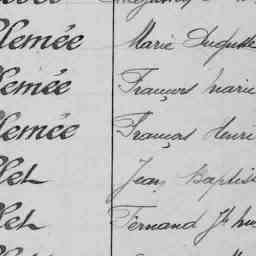 lemée Marie Auguste
lemée François Marie
lemée François Henri
let Jean Baptis
let Fernand Jh